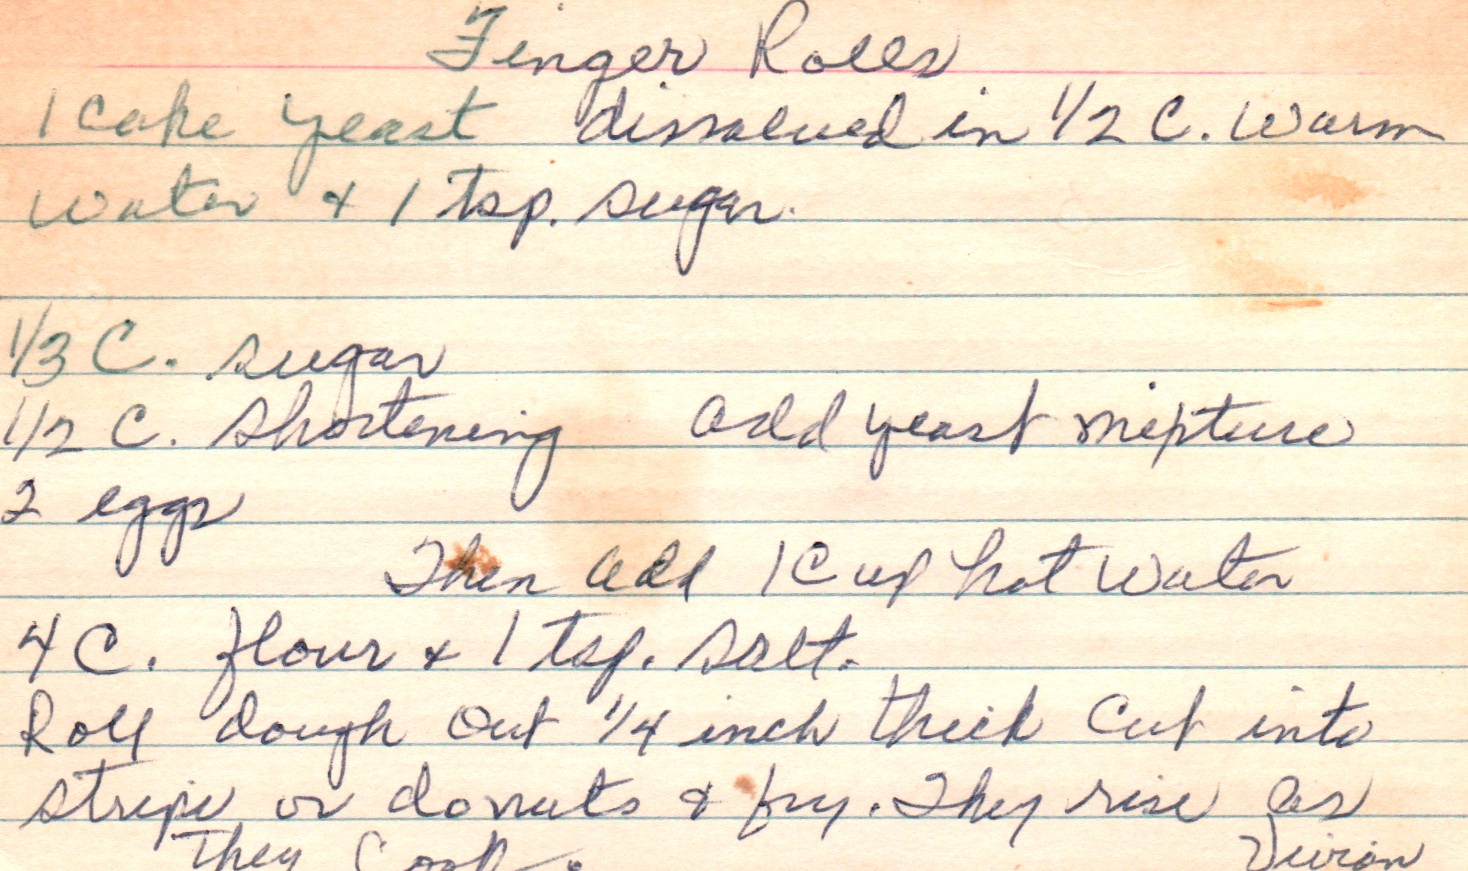 Finger Rolls
1 cake yeast dissolved in 1/2 C. Warm
Water & 1 tsp. sugar.
1/3 C. sugar
1/2 C. Shortening add yeast mixture
2 eggs
Then add 1 Cup hot Water
4 C. flour & 1 tsp. Salt.
Roll dough out 1/4 inch thick Cut into
strips or donuts & fry. They rise as
They Cook.
Vivian